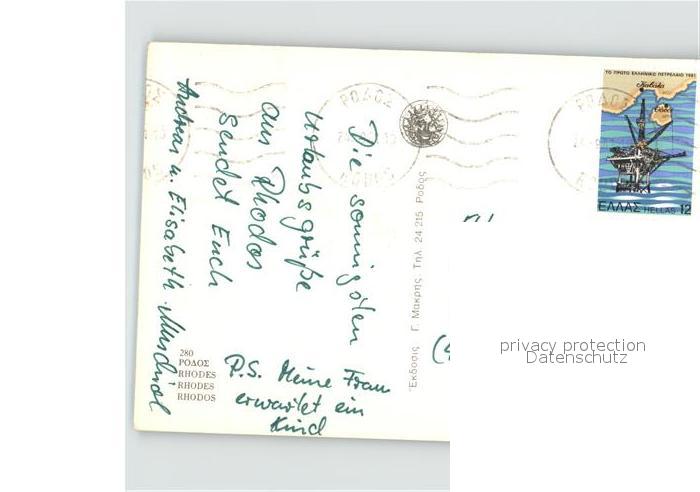 Die sonnigsten
Urlaubsgrüße
aus Rhodos
sendet Euch
Andreas u. Elisabeth
P.S. Meine Frau
erwartet ein
Kind
280
ΡΟΔΟΣ
RHODES
RHODES
RHODOS
Ἔκδοσις Γ. Μακρης Τηλ. 24.215 Ροδος
ΡΟΔΟΣ
ΤΟ ΠΡΩΤΟ ΕΛΛΗΝΙΚΟ ΠΕΤΡΕΛΑΙΟ 1981
Καβάλα
ΕΛΛΑΣ HELLAS 12
privacy protection
Datenschutz